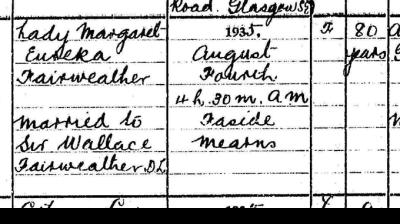 Road. Glasgow S
Lady Margaret 1935. F 80
Eureka August years
Fairweather Fourth
4 h. 30 m. A M
married to Faside
Sir Wallace Mearns
Fairweather D.L.